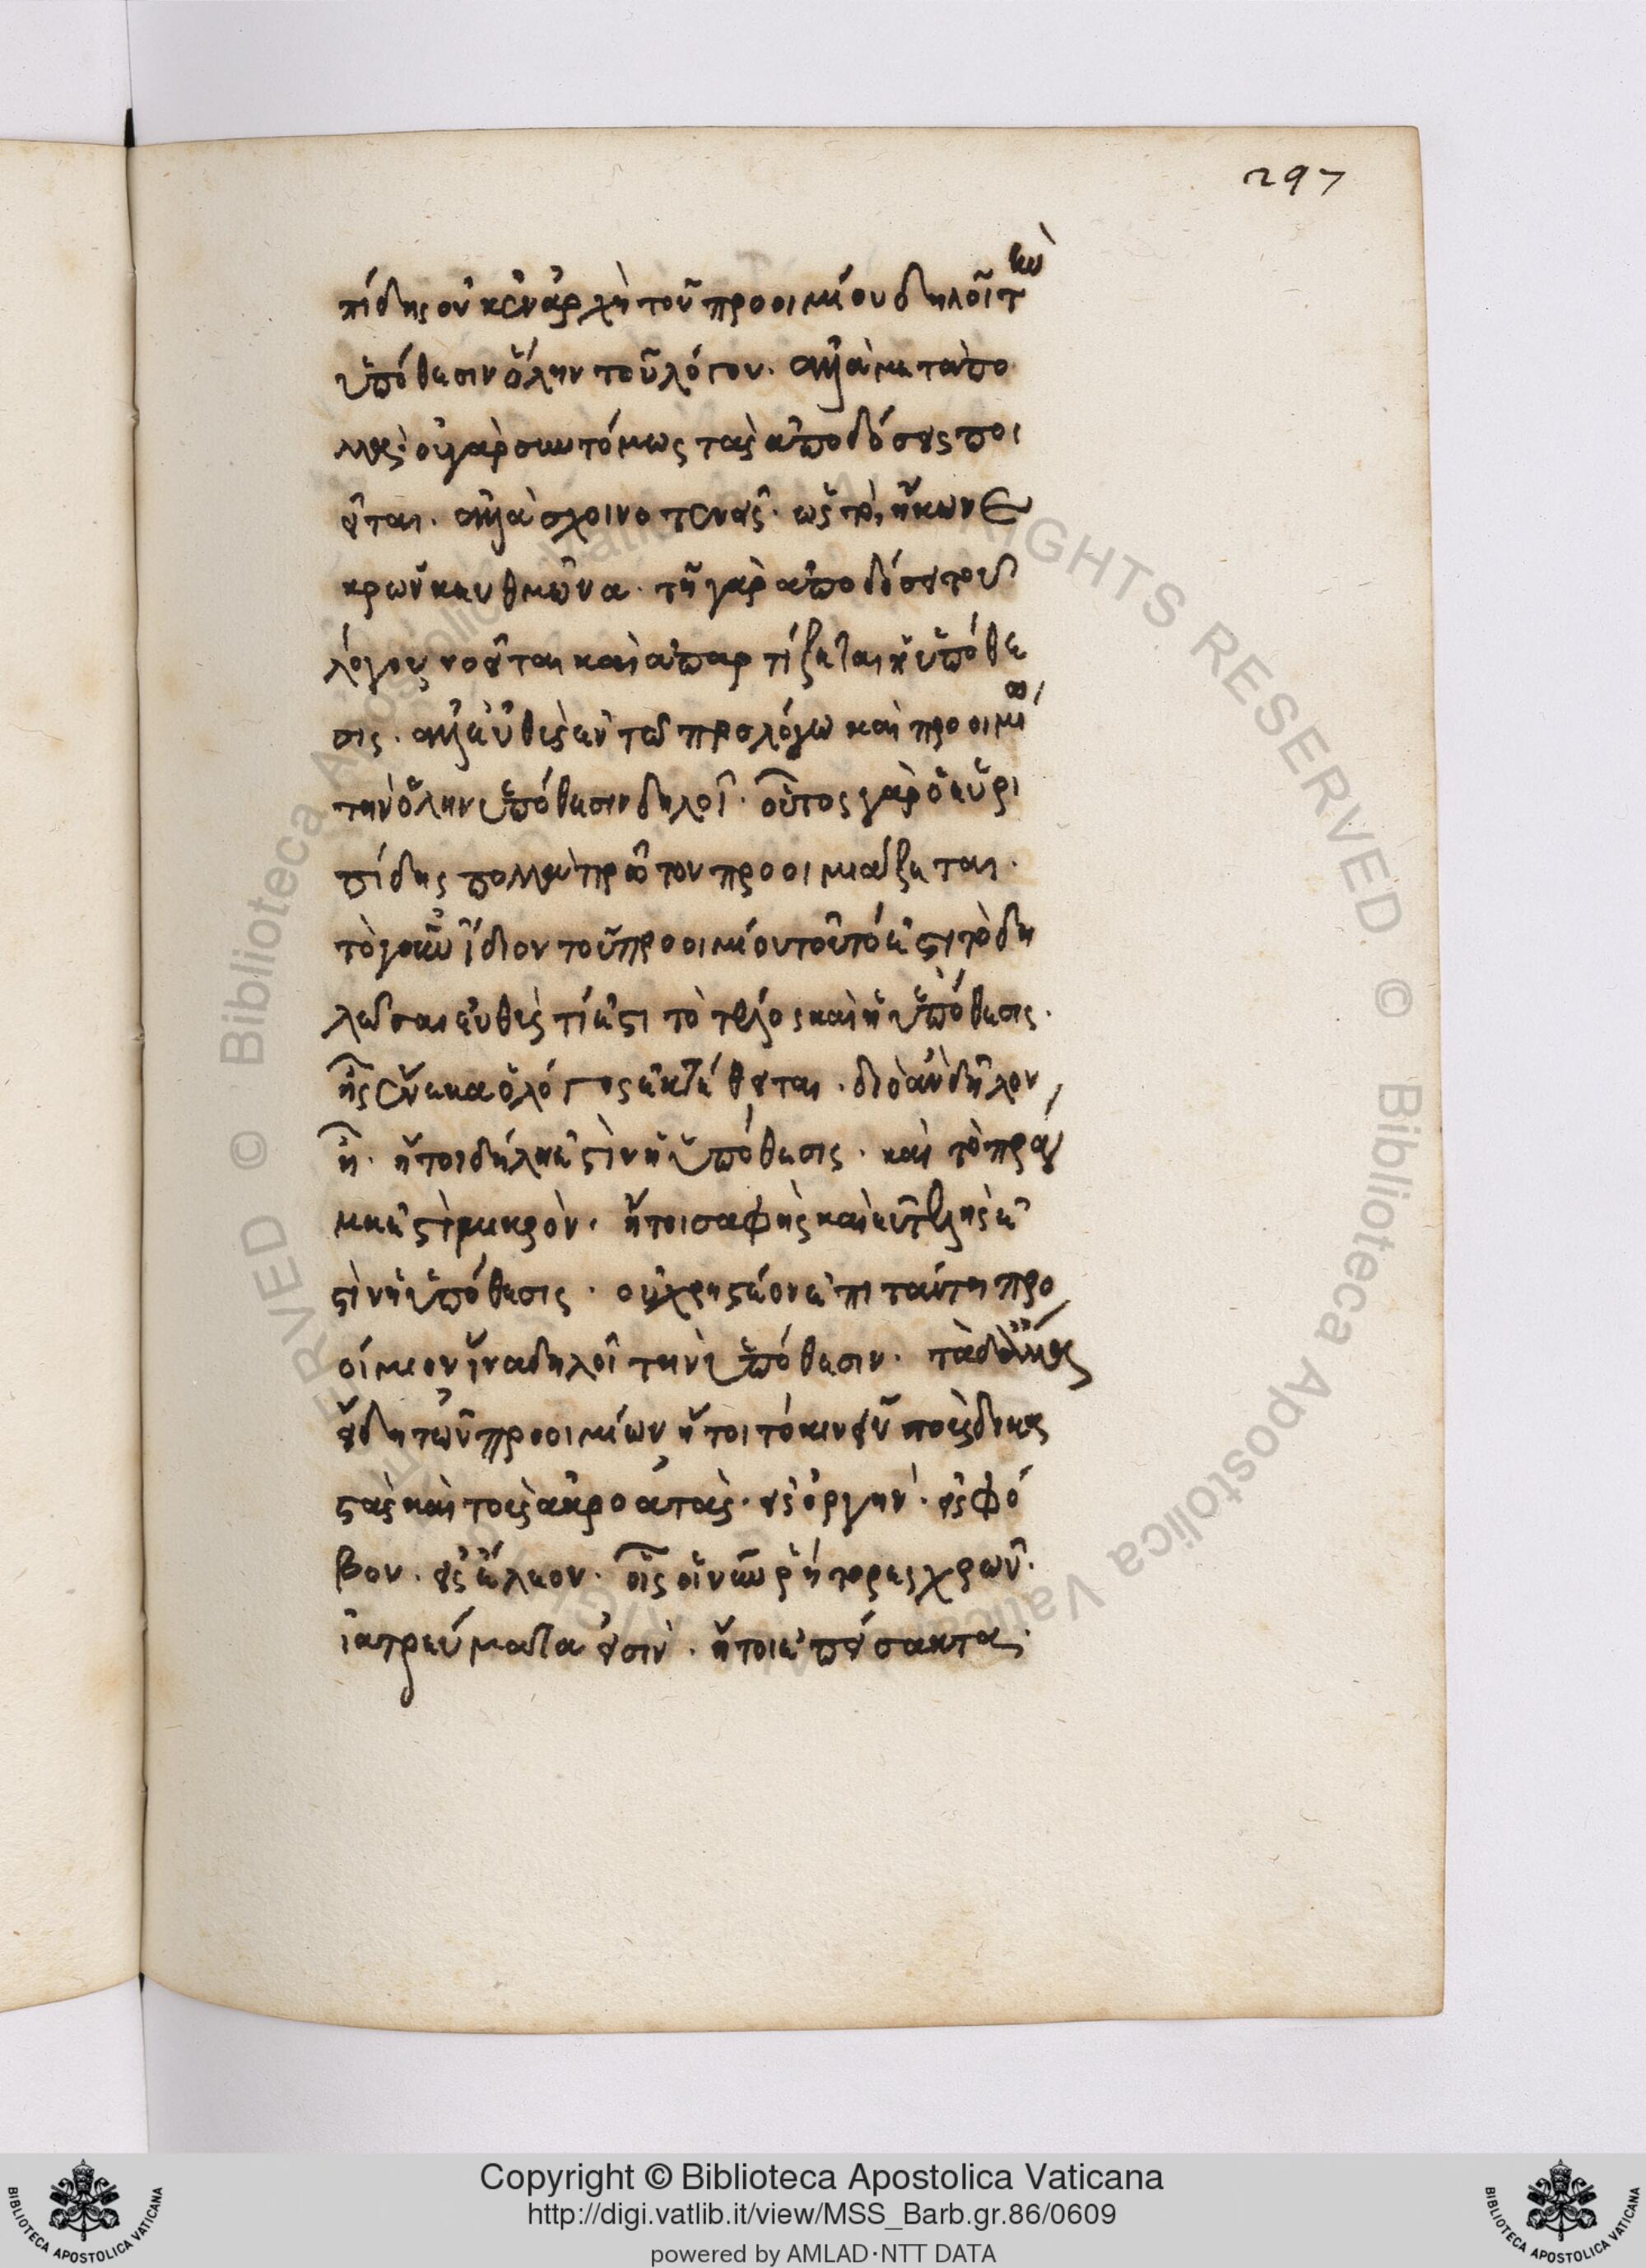 297
πίδης οὐκ ἐν ἀρχῇ τοῦ προοιμίου δηλοῖ τὴν
ὑπόθεσιν ὅλην τοῦ λόγου. ἀλλὰ μετὰ πο
λλάς· οὐ γὰρ συντόμως τὰς ἀποδόσεις ποι
εῖται. ἀλλὰ σχοινοτενεῖς. ὡς τὸ, ἥκω νε
κρῶν κευθμῶνα. τῇ γὰρ ἀποδόσει τοῦ
λόγου νοεῖται καὶ ἀπαρτίζεται ἡ ὑπόθε
σις. ἀλλ' εὐθὺς ἐν τῶ προλόγω καὶ προοιμίω
τὴν ὅλην ὑπόθεσιν δηλοῖ. οὗτος γὰρ ὁ εὐρι
πίδης πολλὰ πρῶτον προοιμιάζεται.
τὸ γοῦν ἴδιον τοῦ προοιμίου τοῦτό ἐστι τὸ δη
λῶσαι εὐθὺς τί ἐστι τὸ τέλος καὶ ἡ ὑπόθεσις.
ἧς ἕνεκα ὁ λόγος ἐκτέθειται. διὸ ἂν δῆλον
ἦ. ἤτοι δήλη ἐστὶν ἡ ὑπόθεσις. καὶ τὸ πρᾶγ
μα ἐστὶ μικρὸν. ἤτοι σαφὴς καὶ εὐτελής ἐ
στὶν ἡ ὑπόθεσις. οὐ χρηστέον ἐπὶ ταύτη προ
οίμιον ἵνα δηλοῖ τὴν ὑπόθεσιν. τὰ δὲ ἄλλα
εἴδη τῶν προοιμίων ἤτοι τὸ κινεῖν τοὺς δικα
στὰς καὶ τοὺς ἀκροατὰς. εἰς ὀργὴν. εἰς φό
βον. εἰς ἔλεον. οἷς οἱ νῦν ῥήτορες χρῶν.
ἰατρεύματα εἰσὶν. ἤτοι ἐπείσακτα.
Copyright © Biblioteca Apostolica Vaticana
http://digi.vatlib.it/view/MSS_Barb.gr.86/0609
powered by AMLAD·NTT DATA